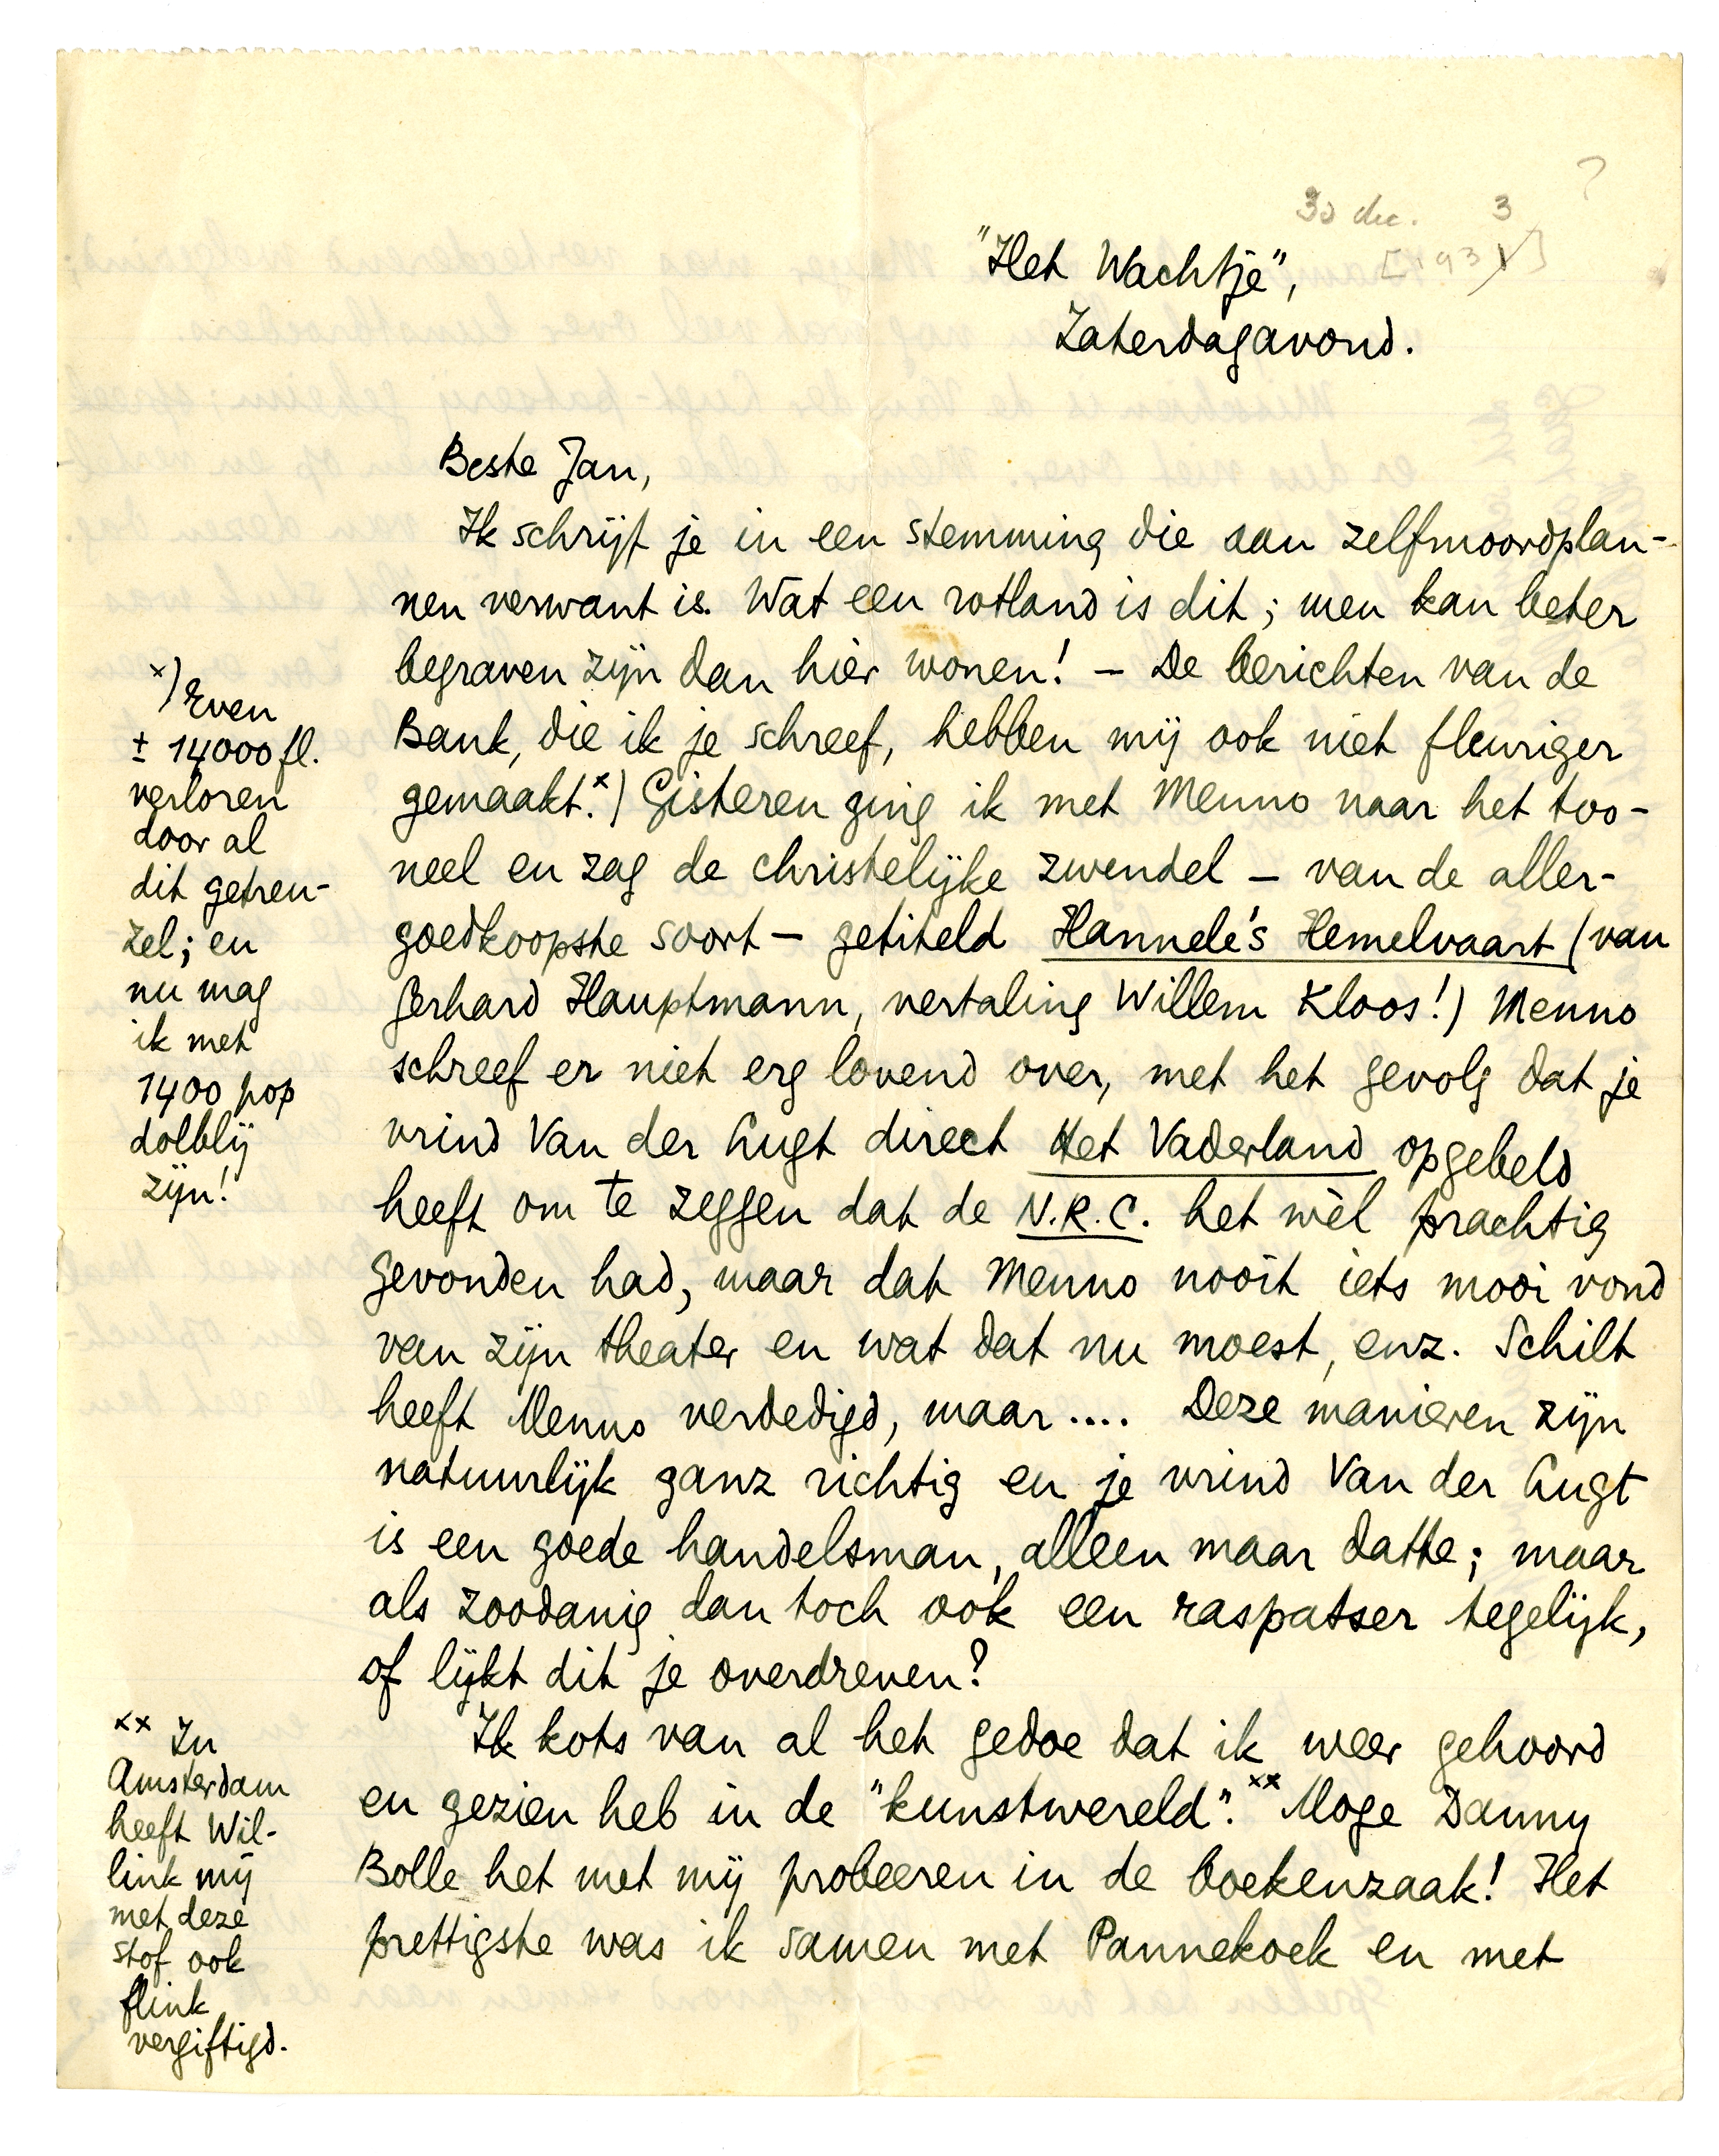 30 dec. 3 ?
"Het Wachtje", [1931]
Zaterdagavond.
Beste Jan,
Ik schrijf je in een stemming die aan zelfmoordplan-
nen verwant is. Wat een rotland is dit; men kan beter
begraven zijn dan hier wonen! – De berichten van de
Bank, die ik je schreef, hebben mij ook niet fleuriger
gemaakt.x) Gisteren ging ik met Menno naar het too-
neel en zag de christelijke zwendel – van de aller-
goedkoopste soort – getiteld Hannele's Hemelvaart (van
Gerhard Hauptmann, vertaling Willem Kloos!) Menno
schreef er niet erg lovend over, met het gevolg dat je
vrind Van der Lugt direct Het Vaderland opgebeld
heeft om te zeggen dat de N.R.C. het wèl prachtig
gevonden had, maar dat Menno nooit iets mooi vond
van zijn theater en wat dat nu moest, enz. Schilt
heeft Menno verdedigd, maar.... Deze manieren zijn
natuurlijk ganz richtig en je vrind Van der Lugt
is een goede handelsman, alleen maar datte; maar
als zoodanig dan toch ook een raspatser tegelijk,
of lijkt dit je overdreven?
Ik kots van al het gedoe dat ik weer gehoord
en gezien heb in de "kunstwereld".xx Moge Danny
Bolle het met mij probeeren in de boekenzaak! Het
prettigste was ik samen met Pannekoek en met
x) Even
± 14000 fl.
verloren
door al
dit getreu-
zel; en
nu mag
ik met
1400 pop
dolblij
zijn!
xx In
Amsterdam
heeft Wil-
link mij
met deze
stof ook
flink
vergiftigd.